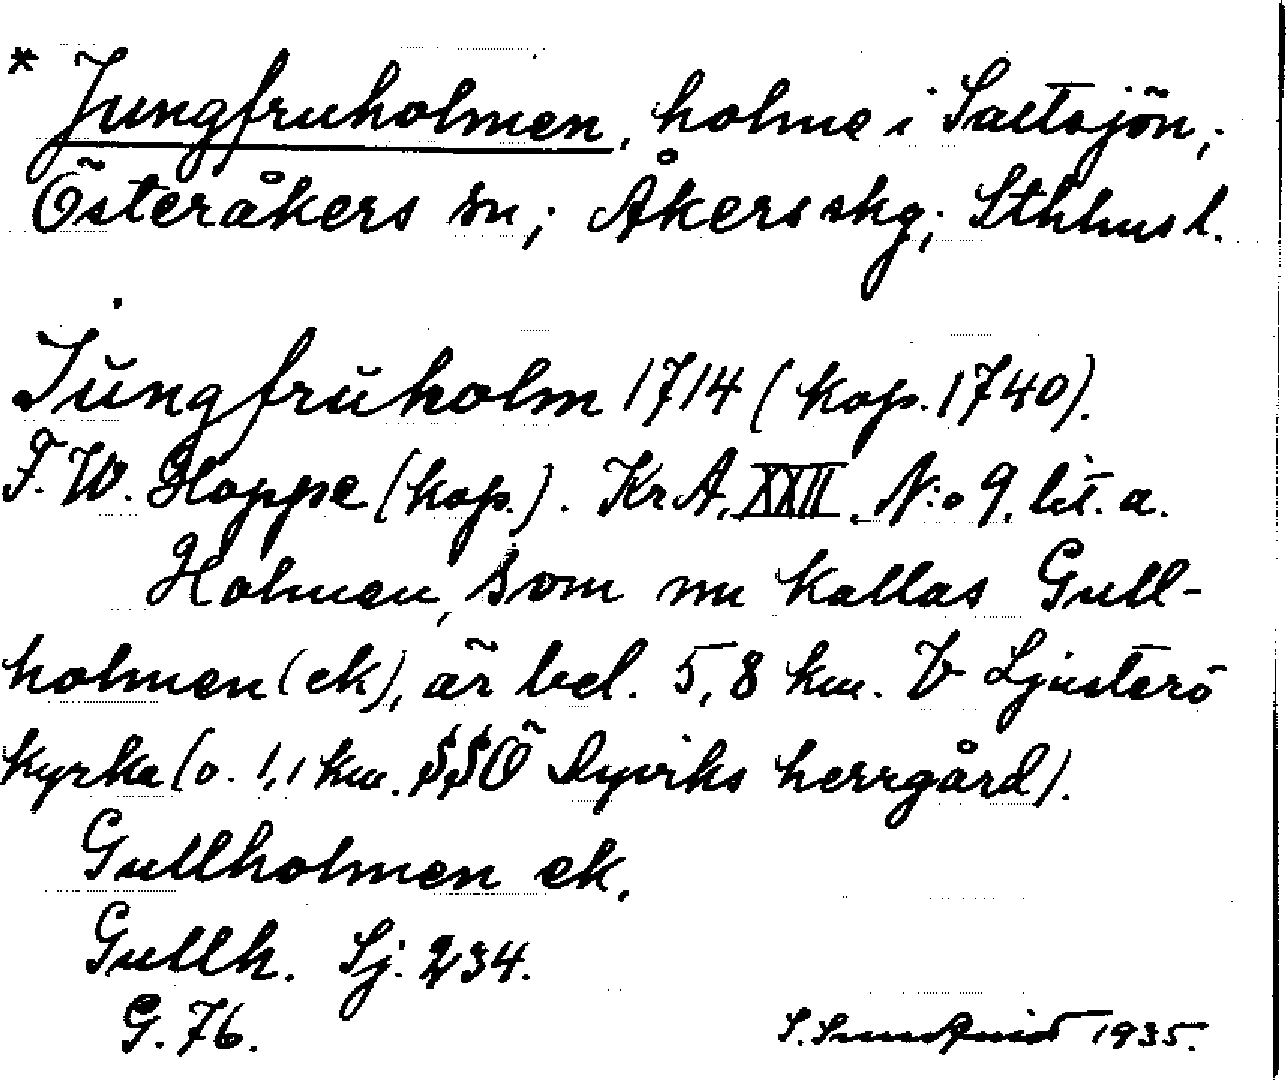 * Jungfruholmen, holme i Saltsjön;
Österåkers sn; Åkers skg; Sthlms l.
Jŭngfrŭholm 1714 (kop. 1740).
F. W. Hoppe (kop.). KrA. XXII. N:o 9. lit. a.
Holmen, som nu kallas Gull-
holmen (ek), är bel. 5,8 km. V Ljusterö
kyrka (o. 1,1 km. SSÖ Dyviks herrgård).
Gullholmen ek.
Gullh. Sj. 234.
G. 76.
S. 1935.